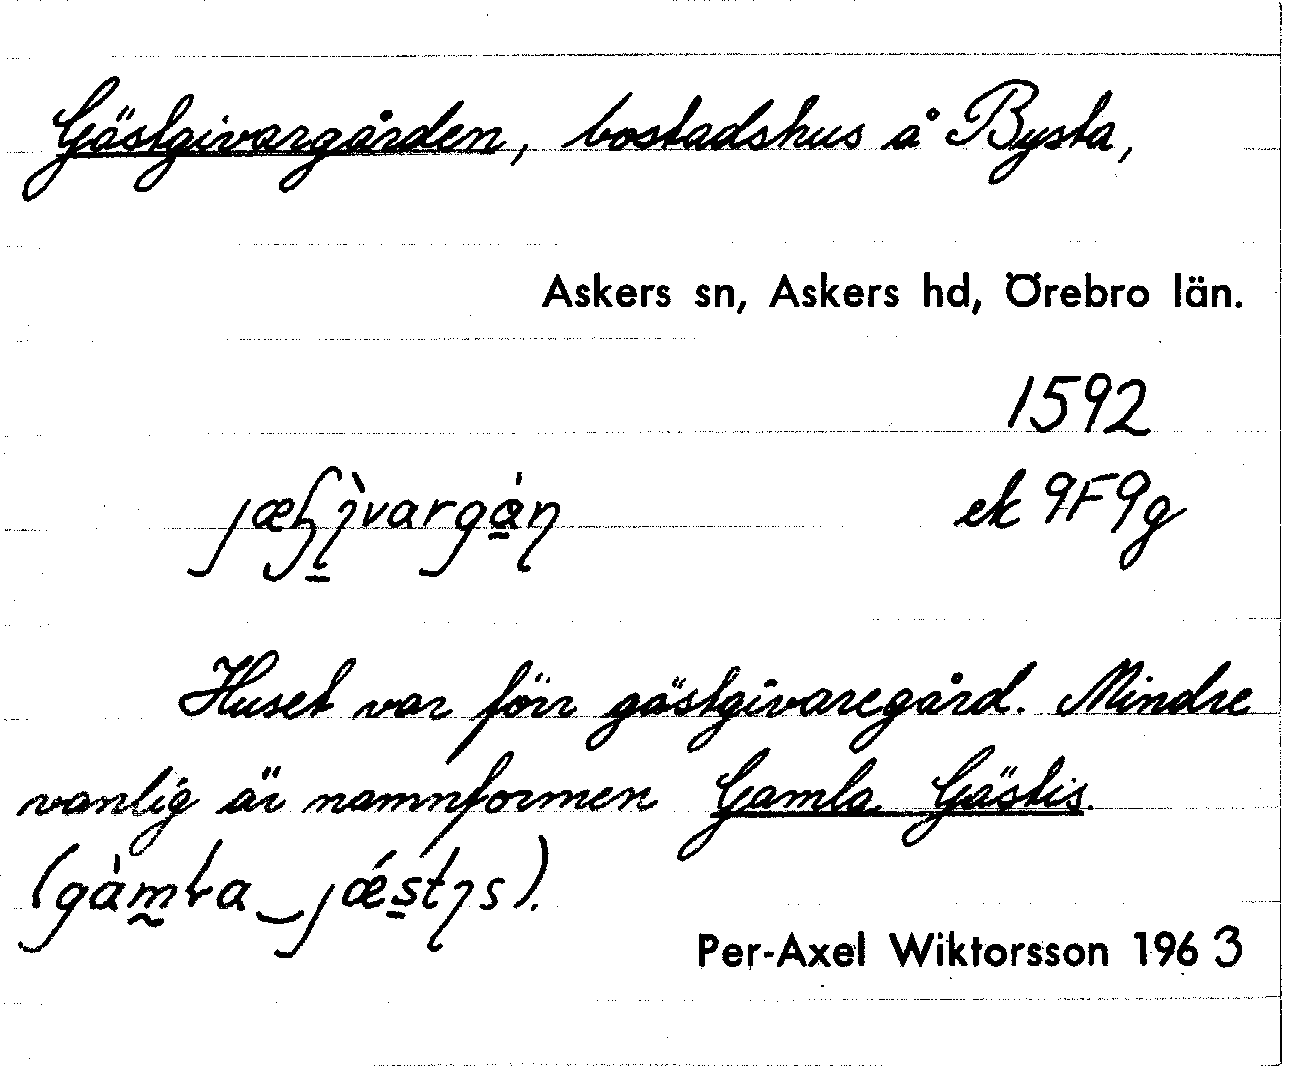 Gästgivargården, bostadshus å Bysta,
Askers sn, Askers hd, Örebro län.
1592
ek 9F9g
Huset var förr gästgivaregård. Mindre
vanlig är namnformen Gamla Gästis.
Per-Axel Wiktorsson 1963